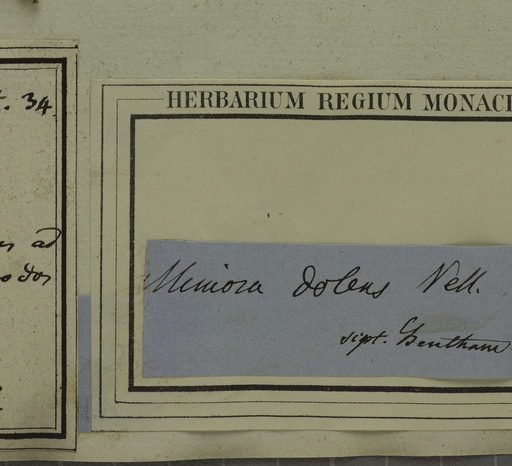 t. 34.
ad
HERBARIUM REGIUM MONAC
Mimosa dolens Vell.
sipt. Bentham